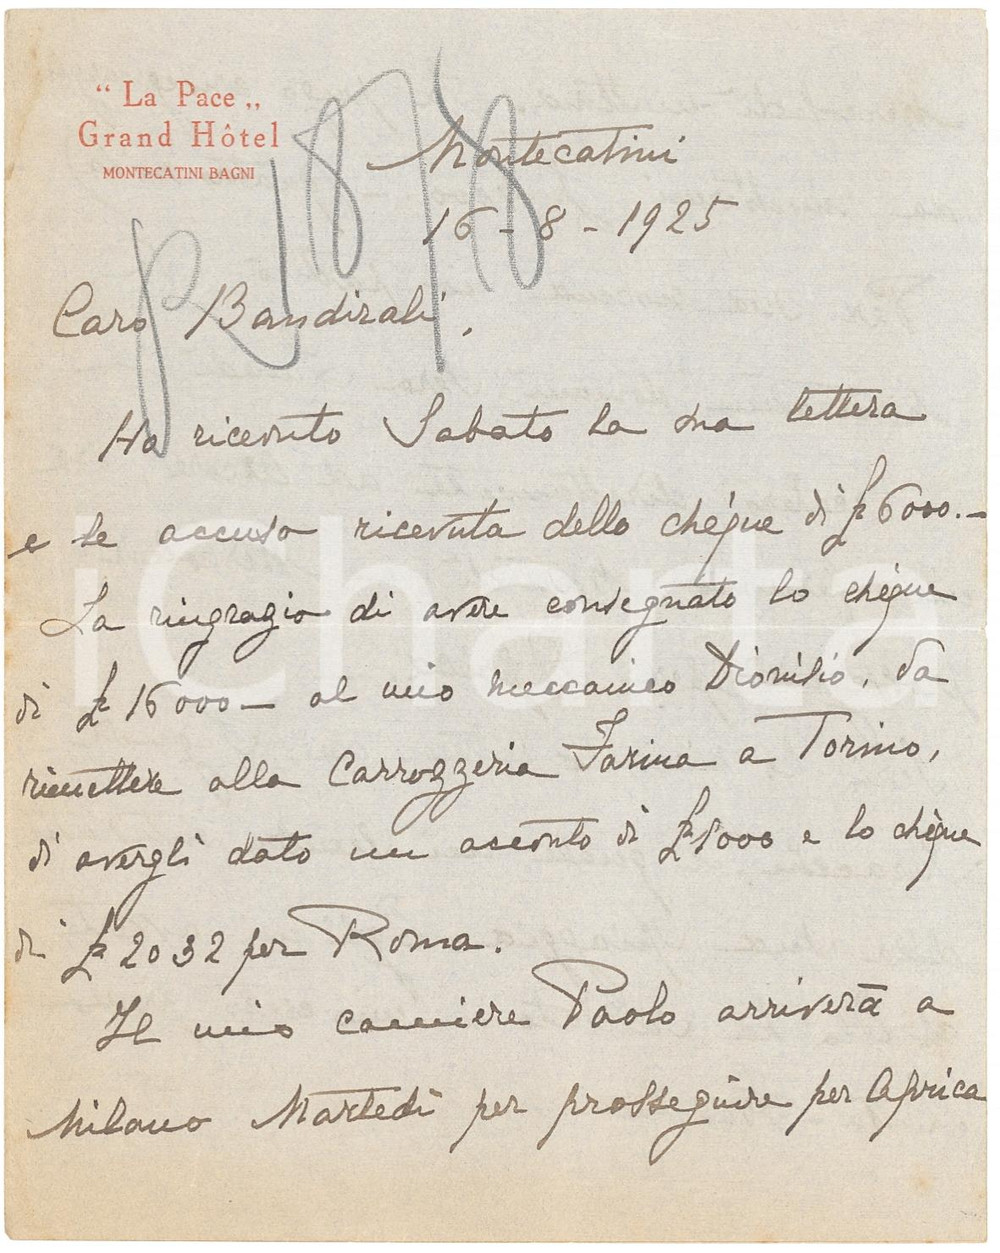 “ La Pace „
Grand Hôtel
MONTECATINI BAGNI
R 18/8
Montecatini
16-8-1925
Caro Bandirali,
Ho ricevuto Sabato la sua lettera
e le accuso ricevuta dello chéque di £ 6000.-
La ringrazio di avere consegnato lo chéque
di £ 16000- al mio meccanico Dionisio, da
rimettere alla Carrozzeria Farina a Torino,
di avergli dato un acconto di £ 1000 e lo chéque
di £ 2032 per Roma.
Il mio camiere Paolo arriverà a
Milano Martedì per prosseguire per l'Africa
iCharta